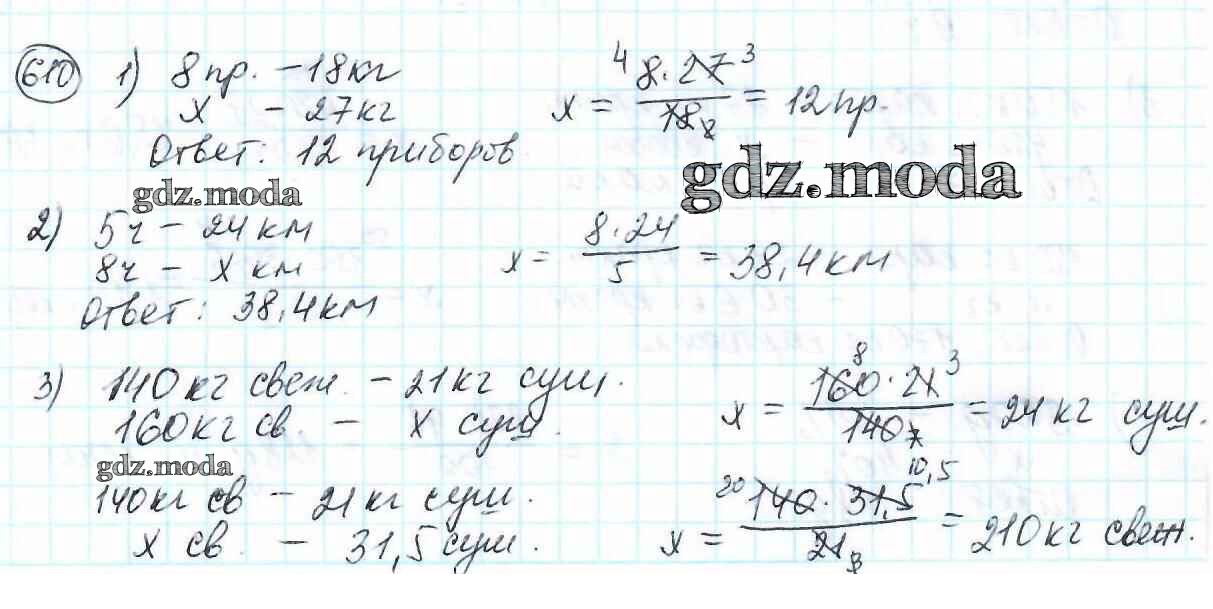 610 1) 8 пр. – 18 кг
x – 27 кг
x = 8·27/18 = 12 пр.
4 3 2
Ответ: 12 приборов
gdz.moda
gdz.moda
2) 5ч – 24 км
8ч – x км
x = 8·24/5 = 38,4 км
Ответ: 38,4 км
3) 140 кг свеж. – 21 кг суш.
160 кг св. – x суш.
x = 160·21/140 = 24 кг суш.
8 3 7
gdz.moda
140 кг св – 21 кг суш.
x св. – 31,5 суш.
x = 140·31,5/21 = 210 кг свеж.
20 10,5 3